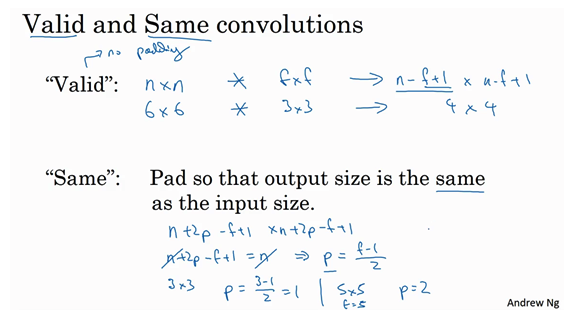 Valid and Same convolutions
→ no padding
"Valid": n×n * f×f → n-f+1 × n-f+1
6×6 * 3×3 → 4 × 4
"Same": Pad so that output size is the same
as the input size.
n+2p-f+1 ×n+2p-f+1
n+2p-f+1 = n ⇒ p = f-1/2
3×3 p = 3-1/2 = 1 | 5×5 p=2
f=5
Andrew Ng